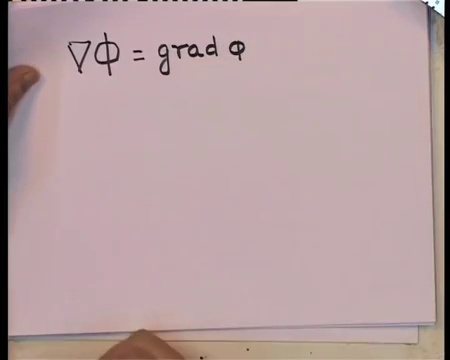 ∇Φ = grad φ